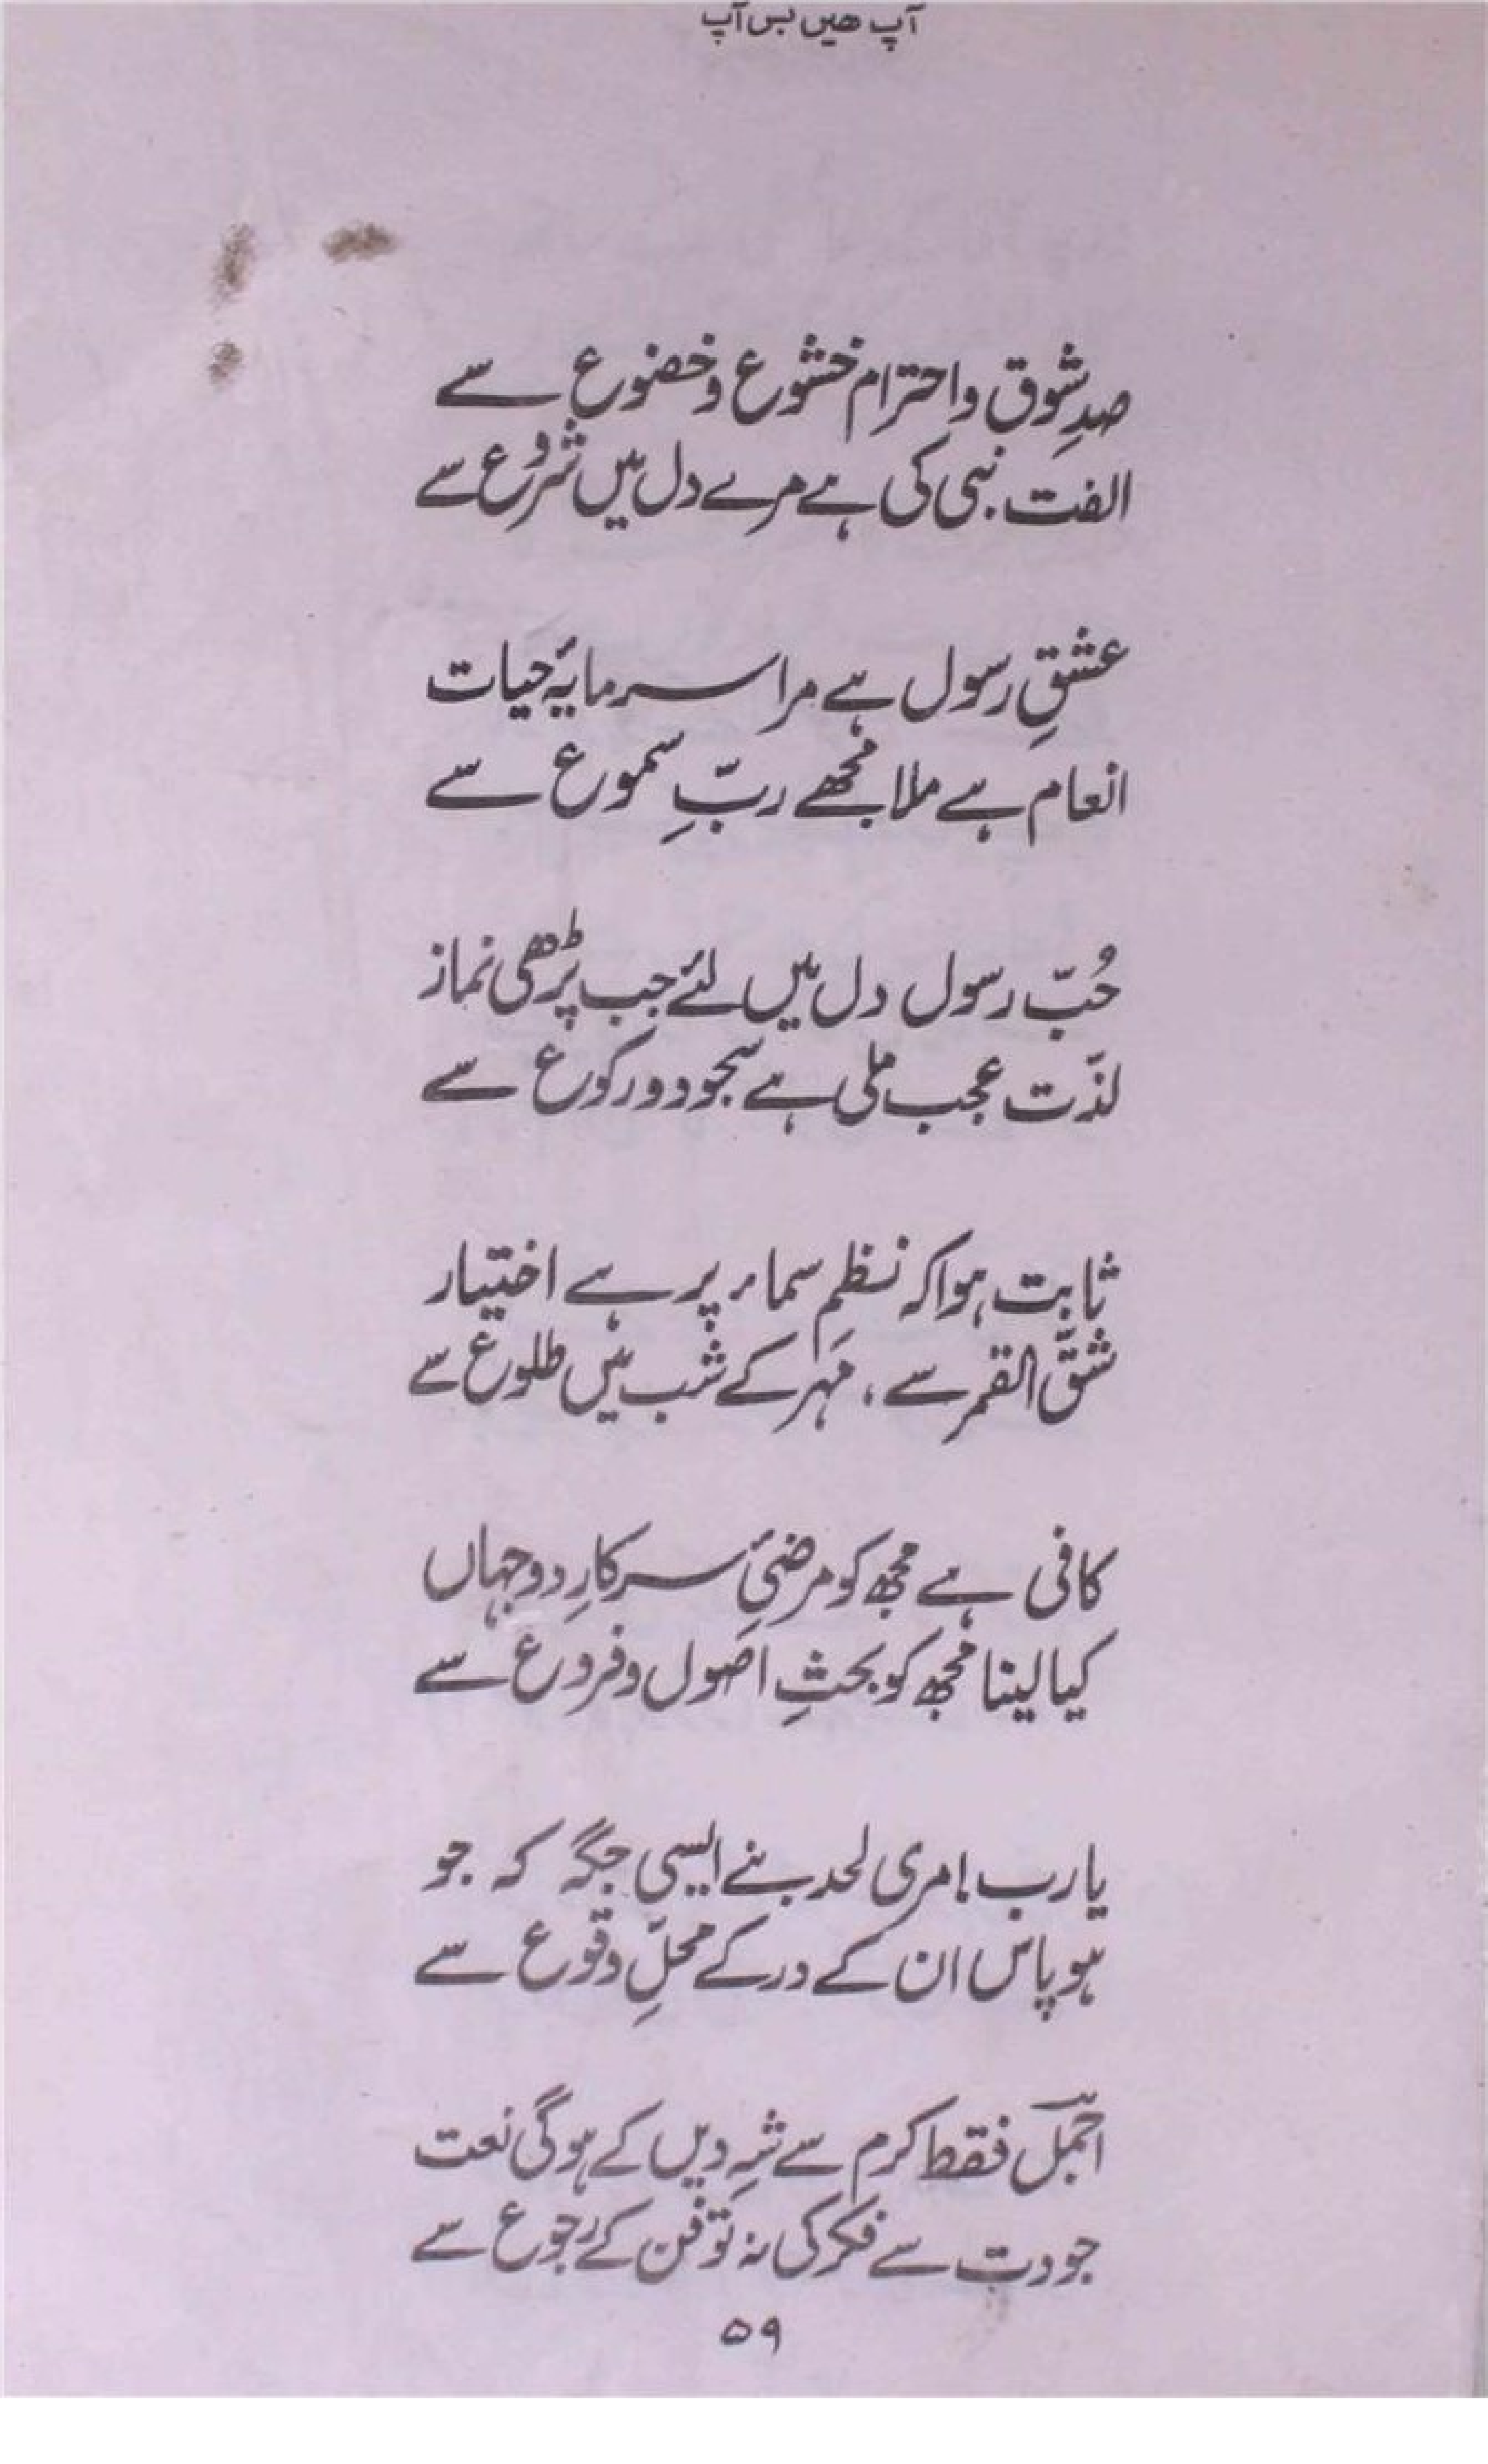 آپ ھیں بس آپ
صدِ شوق و احترام خشوع و خضوع سے
الفت نبی کی ہے مرے دل میں شروع سے
عشقِ رسول ہے مرا سرمایۂ حیات
انعام ہے ملا مجھے ربِّ سموع سے
حُبّ رسول دل میں لئے جب پڑھی نماز
لذّت عجب ملی ہے سجود و رکوع سے
ثابت ہوا کہ نظمِ سماء پر ہے اختیار
شقّ القمر سے ، مہر کے شب میں طلوع سے
کافی ہے مجھ کو مرضیٔ سرکارِ دو جہاں
کیا لینا مجھ کو بحثِ اصول و فروع سے
یا رب ! مری لحد بنے ایسی جگہ کہ جو
ہو پاس ان کے در کے محلِّ وقوع سے
اجمل فقط کرم سے شہِ دیں کے ہوگی نعت
جودت سے فکر کی نہ تو فن کے رجوع سے
۵۹